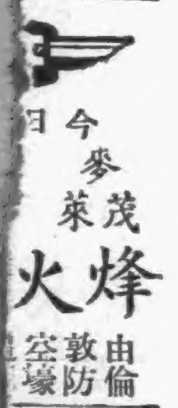 今日
麥
茂萊
烽火
由倫
敦防
空壕